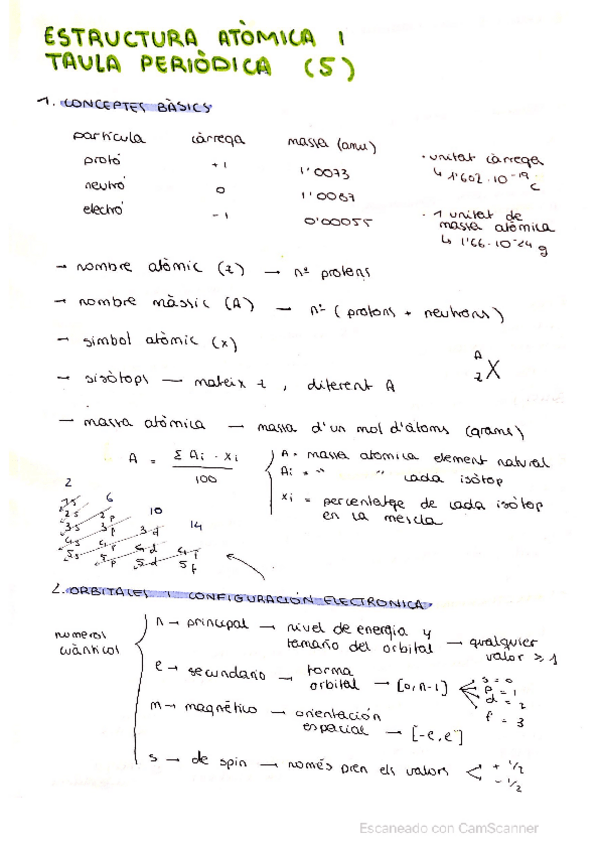 ESTRUCTURA ATÒMICA I
TAULA PERIÒDICA (5)
1. CONCEPTES BÀSICS
partícula càrrega massa (amu)
protó +1 1'0073
neutró 0 1'0087
electró -1 0'00055
· unitat càrrega
↳ 1'602·10⁻¹⁹ C
· 1 unitat de
massa atòmica
↳ 1'66·10⁻²⁴ g
→ nombre atòmic (z) → nº protons
→ nombre màssic (A) → nº (protons + neutrons)
→ símbol atòmic (x)
A
z X
→ isòtops — mateix z, diferent A
→ massa atòmica → massa d'un mol d'àtoms (grams)
A = Σ Ai · xi / 100
A = massa atomica element natural
Ai = " " cada isòtop
xi = percentatge de cada isòtop
en la mescla
2 6 10 14
1s
2s 2p
3s 3p 3d
4s 4p 4d 4f
5s 5p 5d 5f
2. ORBITALES I CONFIGURACIÓN ELECTRONICA.
numeros
cuànticos
n → principal → nivel de energía y
tamaño del orbital → qualquier
valor ≥ 1
e → secundario → forma
orbital → [0, n-1]
s = 0
p = 1
d = 2
f = 3
m → magnético → orientación
espacial → [-e, e]
s → de spin → només pren els valors
+ 1/2
- 1/2
Escaneado con CamScanner